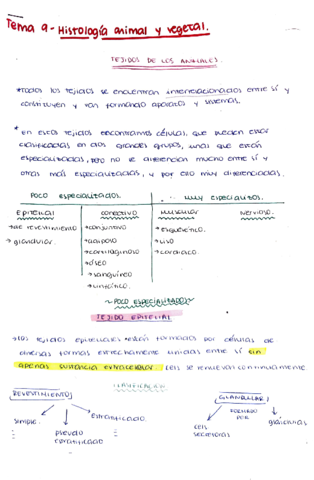 Tema 9 - Histología animal y vegetal.
TEJIDOS DE LOS ANIMALES.
*Todos los tejidos se encuentran interrelacionados entre sí y
constituyen y van formando aparatos y sistemas.
*en estos tejidos encontramos células, que pueden estar
clasificadas en dos grandes grupos, unas que están
especializadas, pero no se diferencian mucho entre sí y
otras más especializadas, y por eso muy diferenciadas.
POCO especializados. MUY especializados.
Epitelial conectivo muscular nervioso.
→ de revestimiento → conjuntivo → esquelético.
→ glandular. → adiposo → liso
→ cartilaginoso → cardiaco.
→ óseo
→ sanguíneo
→ linfático.
POCO ESPECIALIZADOS
TEJIDO EPITELIAL
→ Los tejidos epiteliales están formados por células de
diversas formas estrechamente unidas entre sí sin
apenas sustancia extracelular. Cels se renuevan continuamente
CLASIFICACIÓN
REVESTIMIENTO GLANDULAR
simple. pseudo estratificado estratificado
formado por
cels secretoras glándulas